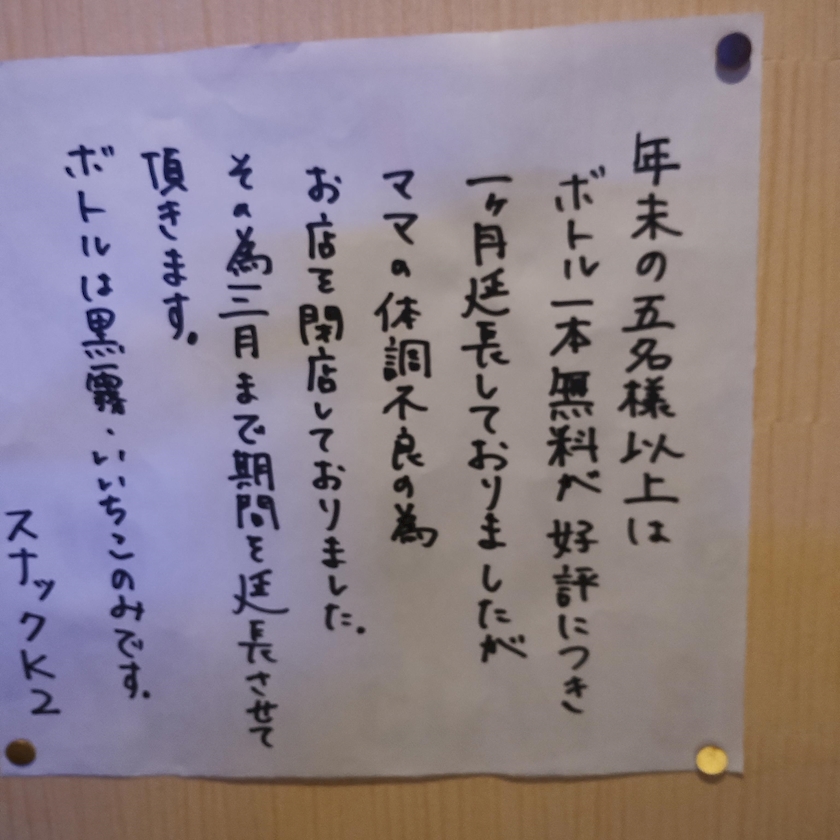 年末の五名様以上は
ボトル一本無料が好評につき
一ヶ月延長しておりましたが
ママの体調不良の為
お店を閉店しておりました。
その為三月まで期間を延長させて
頂きます。
ボトルは黒霧、いいちこのみです。
スナックK2